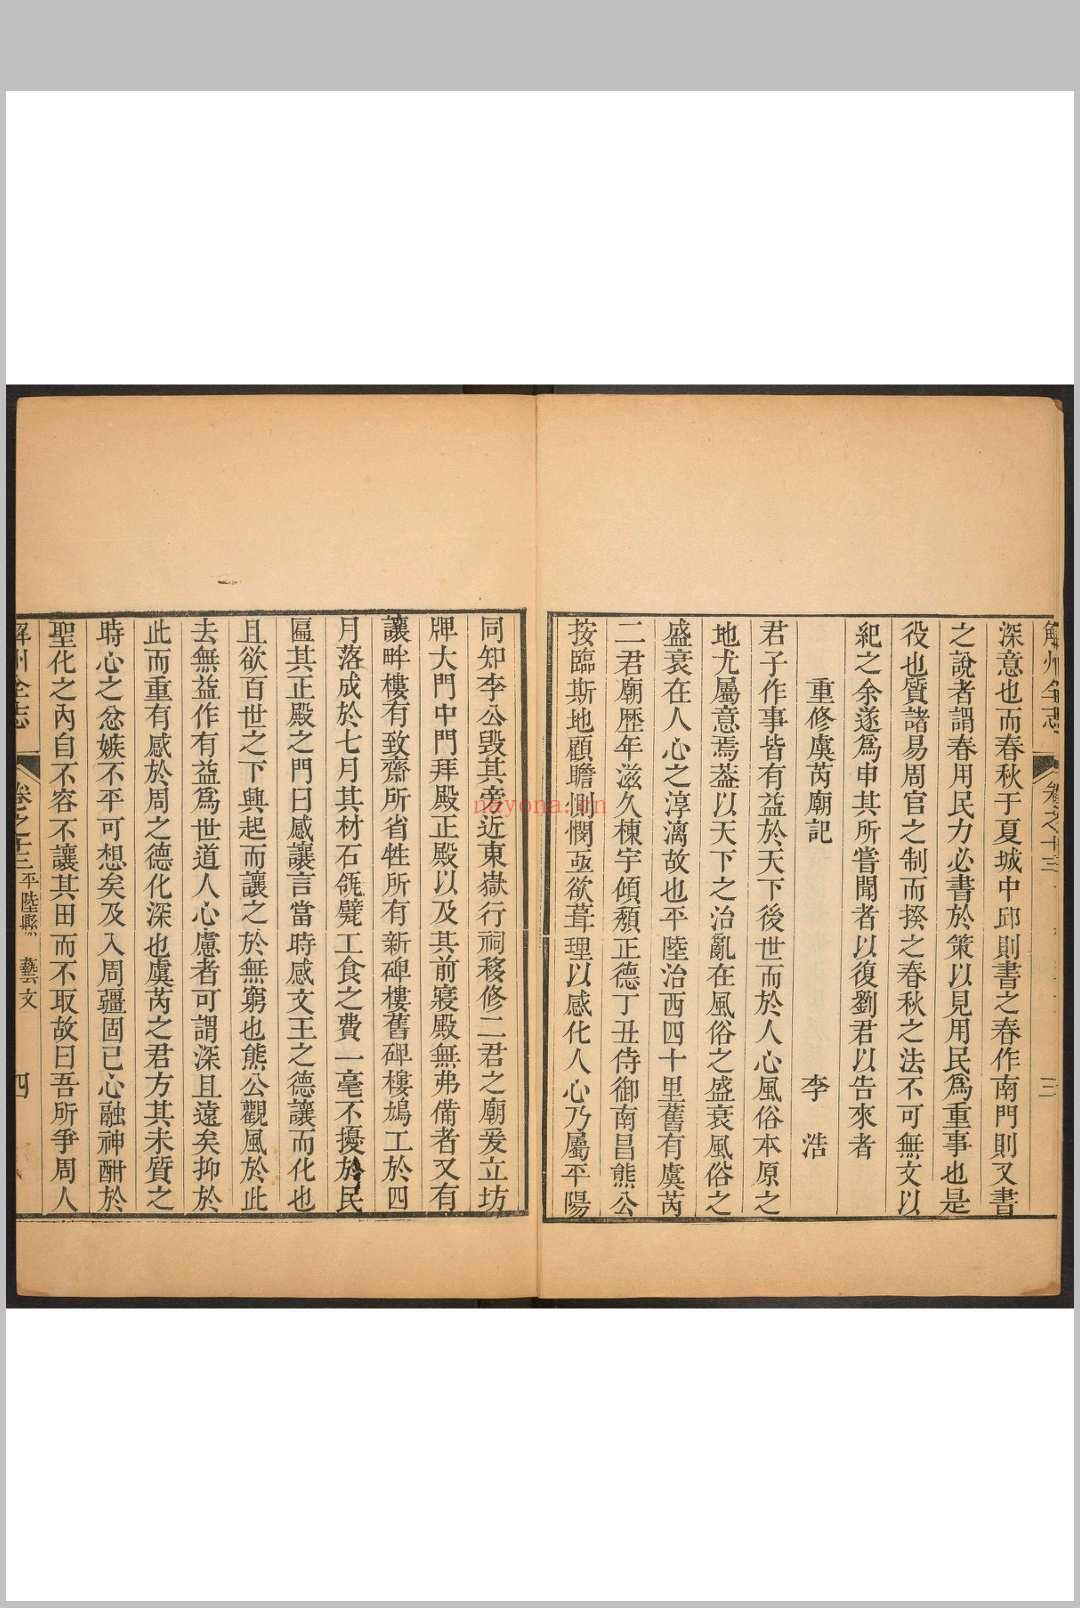 深意也而春秋于夏城中邱則書之春作南門則又書
之說者謂春用民力必書於策以見用民爲重事也是
役也質諸易周官之制而揆之春秋之法不可無文以
紀之余遂爲申其所嘗聞者以復劉君以告來者
重修虞芮廟記
李浩
君子作事皆有益於天下後世而於人心風俗本原之
地尤屬意焉葢以天下之治亂在風俗之盛衰風俗之
盛衰在人心之淳漓故也平陸治西四十里舊有虞芮
二君廟歷年滋久棟宇傾頹正德丁丑侍御南昌熊公
按臨斯地顧瞻惻憫亟欲葺理以感化人心乃屬平陽
同知李公毀其旁近東嶽行祠移修二君之廟爰立坊
牌大門中門拜殿正殿以及其前寢殿無弗備者又有
讓畔樓有致齋所省牲所有新碑樓舊碑樓鳩工於四
月落成於七月其材石瓴甓工食之費一毫不擾於民
匾其正殿之門曰感讓言當時感文王之德讓而化也
且欲百世之下興起而讓之於無窮也熊公觀風於此
去無益作有益爲世道人心慮者可謂深且遠矣抑於
此而重有感於周之德化深也虞芮之君方其未質之
時心之忿嫉不平可想矣及入周疆固已心融神酣於
聖化之內自不容不讓其田而不取故曰吾所爭周人
解州全志 卷之十三 平陸縣 藝文 四
nayona.cn